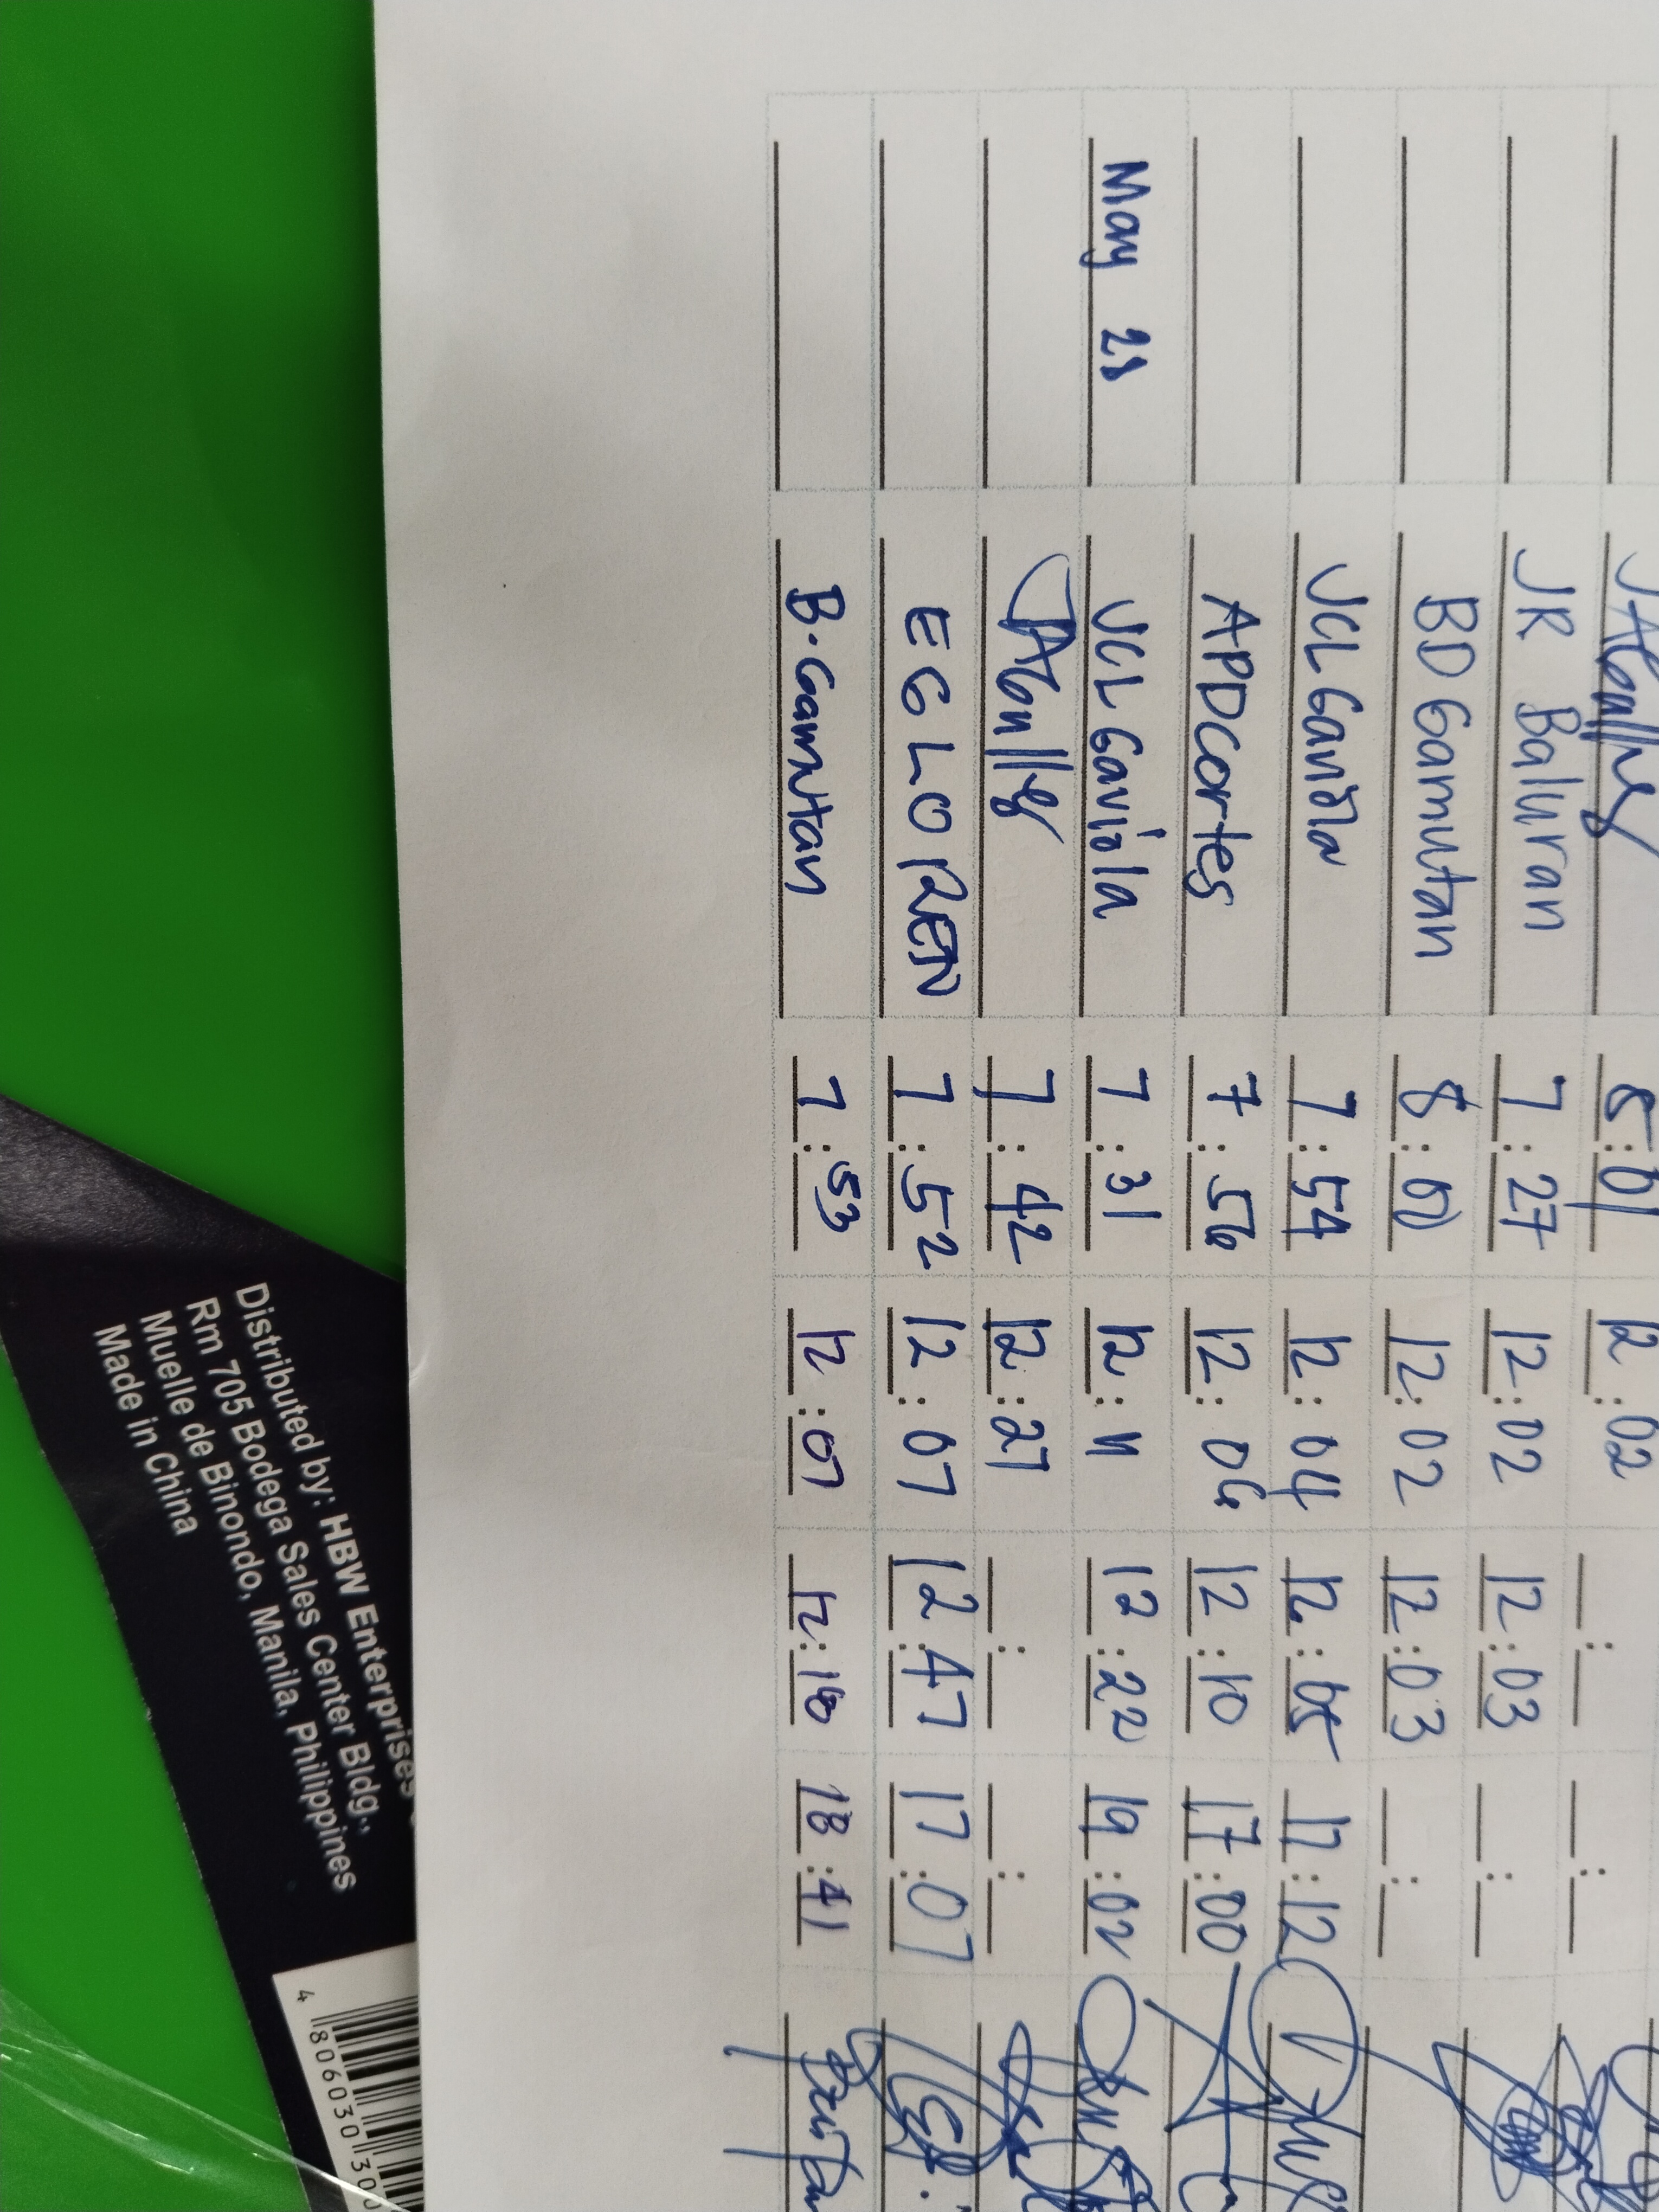 8:01 12:02 __:__ __:__
JR Baluran 7:27 12:02 12:03 __:__
BD Gamutan 8:00 12:02 12:03 __:__
JCL Gaviola 7:54 12:04 12:05 17:12
APDCortes 7:56 12:06 12:10 17:00
May 28 JCL Gaviola 7:31 12:11 12:22 19:02
7:42 12:27 __:__ __:__
EGLOREN 7:52 12:07 12:47 17:07
B. Gamutan 7:53 12:07 12:18 18:41
Distributed by: HBW Enterprises
Rm 705 Bodega Sales Center Bldg.,
Muelle de Binondo, Manila, Philippines
Made in China
4 806030 1300